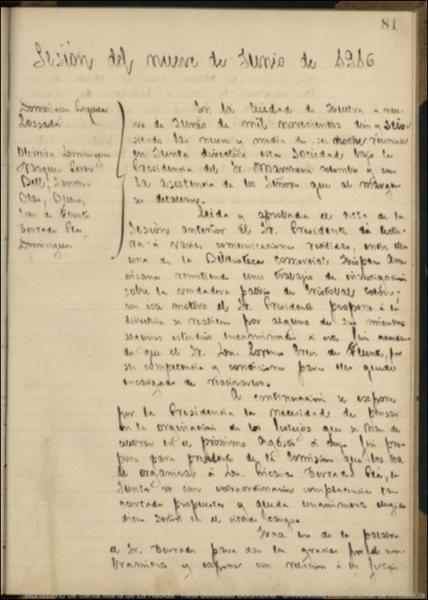 81
Sesión del nueve de Junio de 1916
Dominguez
Lossada
Oliveira Dominguez
Vazquez
Bell,
Diaz,
Cruz de Fuente
Terrades Plá
Dominguez
En la Ciudad de Huelva a nue-
ve de Junio de mil novecientos diez y seis
siendo las nueve y media de su noche reunióse
en Junta directiva esta Sociedad bajo la
Presidencia del Sr. Marchena Colombo y con
la asistencia de los Señores que al margen
se detallan.
Leida y aprobada el acta de la
Sesión anterior el Sr. Presidente dá lectu-
ra á varias comunicaciones recibidas, entre ellas
una de la Biblioteca
remitiendo unos trabajos de investigación
sobre la verdadera patria de Cristobal Colón:
con ese motivo el Sr. Presidente propone á la
directiva se realicen por alguno de sus miembros
algunos estudios encaminados a ese fin acordan-
do que el Sr. Don Lorenzo Cruz de Fuente, por
su competencia y condiciones para ello quede
encargado de
A continuación se expone
por la Presidencia la necesidad de pensar
en la organización de los festejos que se han de
celebrar en el próximo Agosto á cuyo fin pro-
pone para presidente de la Comisión que los ha
de organizar á Don Terrades Plá, la
Junta vé con extraordinaria complacencia tan
acertada propuesta y queda unanimemente elegido
dicho Señor en el citado cargo.
Hace uso de la palabra
el Sr. Terrades para dar las gracias por el nom-
bramiento y expone con relación á los festejos